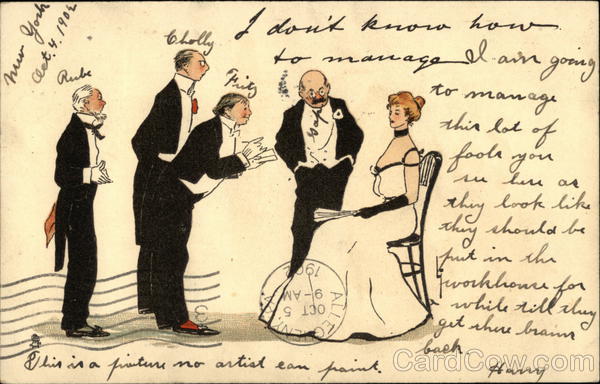 New York
Oct 4, 1902
Rube
Cholly
Fritz
I don't know how
to manage I am going
to manage
this lot of
fools you
see here as
they look like
they should be
put in the
workhouse for
while till they
get there brains
back
Harry
This is a picture no artist can paint.
ALLEGHENY
OCT 5
9-AM
190
CardCow.com